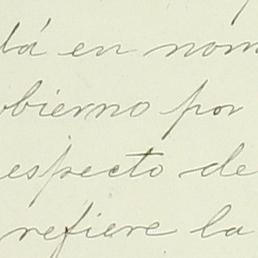 tá en nom
obierno por
especto de
refiere la